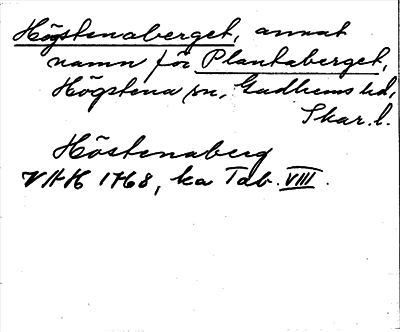 Högstenaberget, annat
namn för Plantaberget,
Högstena sn, Gudhems hd,
Skar. l.
Höstenaberg
VAH 1768, ka Tab. VIII.